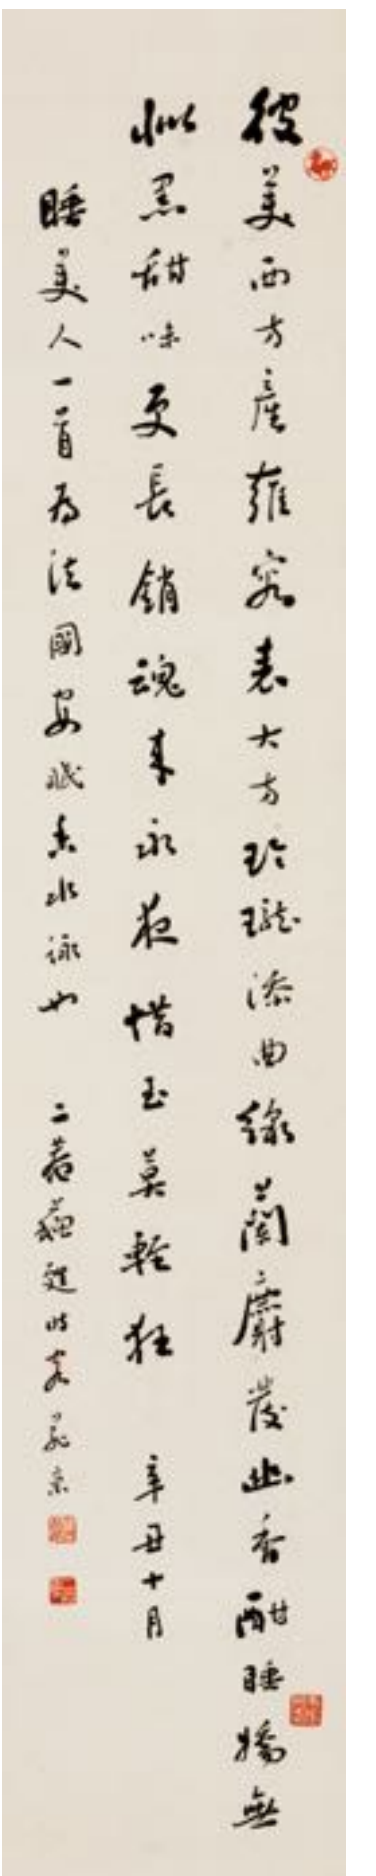 彼美西方產雍容表大方玲瓏添曲線蘭麝發幽香酣睡嬌無
似黑甜味更長銷魂來永夜惜玉莫輕狂 辛丑十月
睡美人一首為法國安眠香水詠也 二若 延時客京